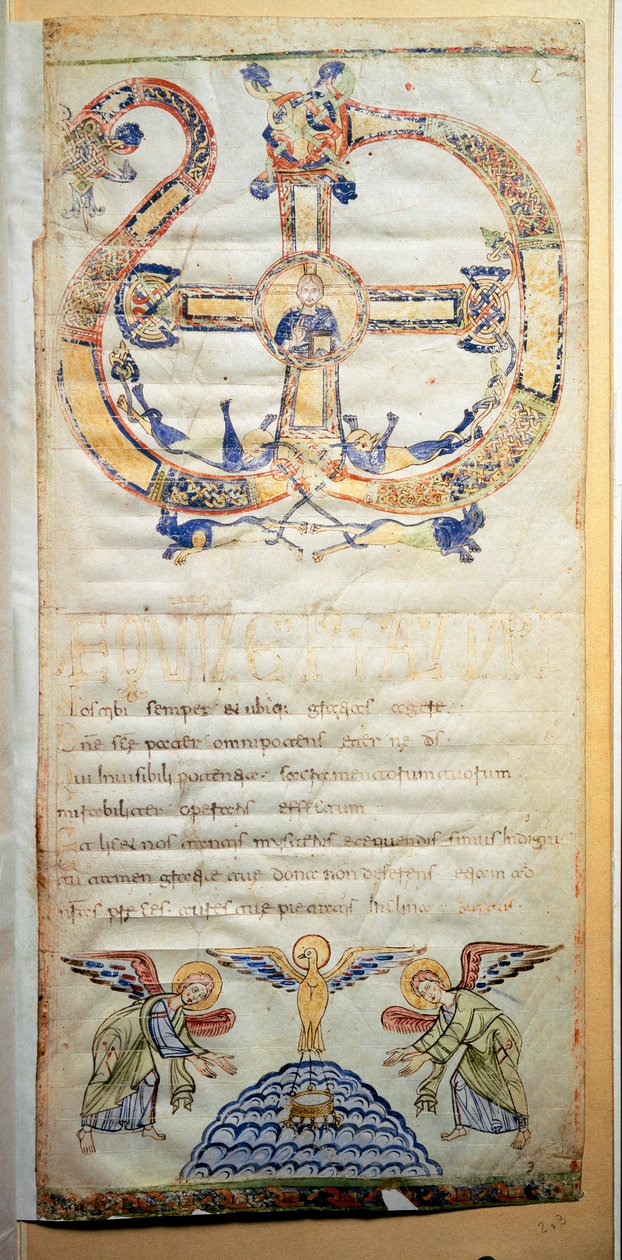 ÆQVVM ET SALVTARE
Nos tibi semper & ubiq; gratias agere.
Dne sce pater omnipotens eterne ds
Qui Inuisibili potentia. sacramentorum tuorum
mirabiliter operaris effectum
Et lic& nos tantis mysteriis exequendis simus Indigni
tu tamen gratie tue dona non deserens. etiam ad
nras preces. aures tue pietatis Inclina